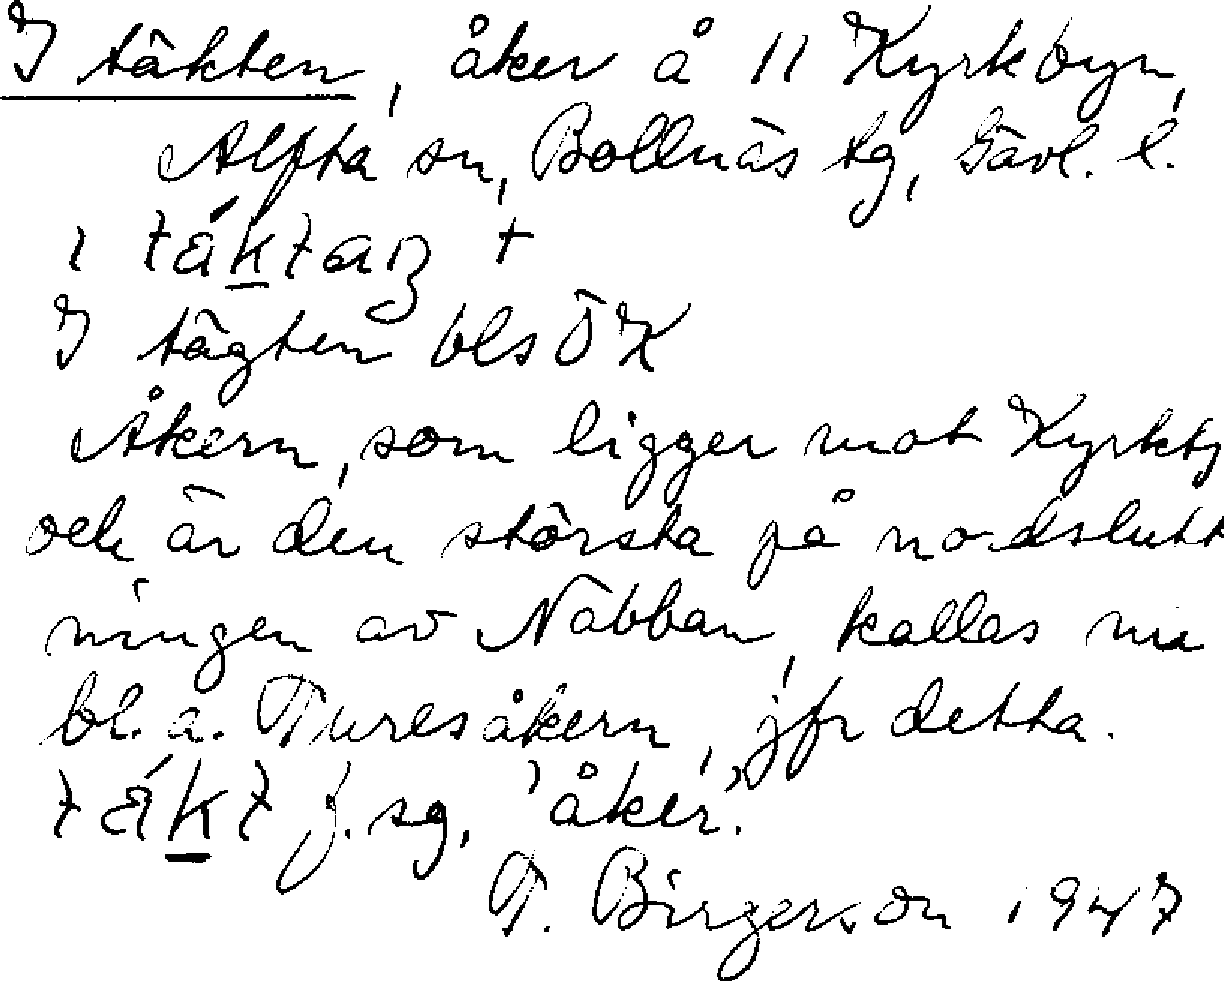 I täkten, åker å 11 Kyrkbyn,
Alfta sn, Bollnäs tg, Gävl. l.
i táktaŋ +
I tägten bls ÖK
Åkern, som ligger mot Kyrkby
och är den största på no.dslutt
ningen av Nabban, kallas nu
bl. a. Turesåkern, jfr detta.
tákt f. sg. 'åker'.
T. Birgerson 1947